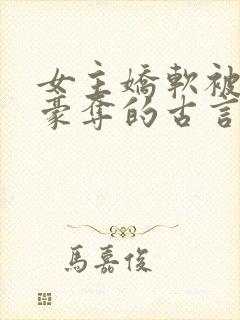 女主嬌軟被
豪奪的古言
馬嘉俊